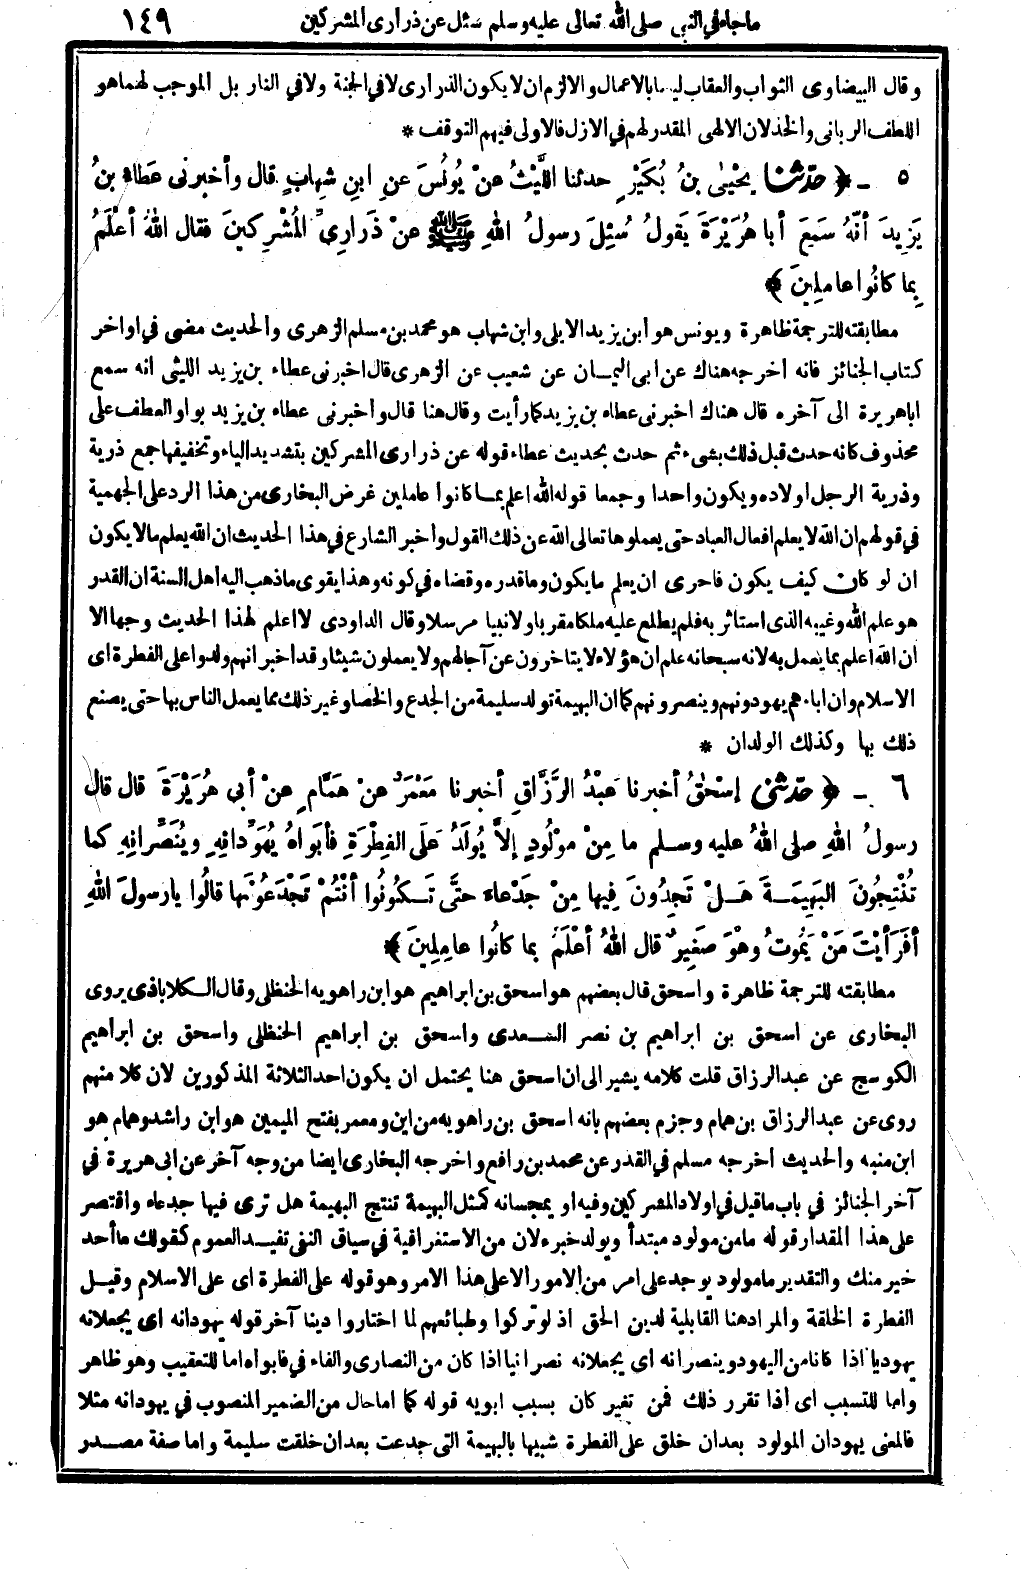 ماجاء في النبي صلى الله تعالى عليه وسلم سئل عن ذراري المشركين ١٤٩
وقال البيضاوى الثواب والعقاب ليسا بالاعمال والالزم ان لا يكون الذرارى لا في الجنة ولا في النار بل الموجب لهما هو
اللطف الربانى والخذلان الالهى المقدر لهم في الازل فالاولى فيهم التوقف *
٥ ـ ﴿ حَدَّثَنَا يَحْيَىٰ بنُ بُكَيْرٍ حدثنا اللَّيْثُ عنْ يُونُسَ عَنِ ابنِ شِهابٍ قال وأخبرنى عَطاءُ بنُ
يَزِيدَ أنَّهُ سَمِعَ أبا هُرَيْرَةَ يَقولُ سُئِلَ رسولُ اللهِ ﷺ عنْ ذَرارِيِّ المُشْرِكِينَ فقال اللهُ أعْلَمُ
بِما كانُوا عامِلِينَ ﴾
مطابقته للترجمة ظاهرة ويونس هو ابن يزيد الايلى وابن شهاب هو محمد بن مسلم الزهرى والحديث مضى في اواخر
كتاب الجنائز فانه اخرجه هناك عن ابى اليمان عن شعيب عن الزهرى قال اخبرنى عطاء بن يزيد الليثى انه سمع
اباهريرة الى آخره قال هناك اخبرنى عطاء بن يزيد كما رأيت وقال هنا قال واخبرنى عطاء بن يزيد بواو العطف على
محذوف كانه حدث قبل ذلك بشىء ثم حدث بحديث عطاء قوله عن ذرارى المشركين بتشديد الياء وتخفيفها جمع ذرية
وذرية الرجل اولاده ويكون واحدا وجمعا قوله الله اعلم بما كانوا عاملين غرض البخارى من هذا الرد على الجهمية
في قولهم ان الله لا يعلم افعال العباد حتى يعملوها تعالى الله عن ذلك القول وأخبر الشارع في هذا الحديث ان الله يعلم ما لا يكون
ان لو كان كيف يكون فاحرى ان يعلم ما يكون وما قدره وقضاه في كونه وهذا يقوى ما ذهب اليه اهل السنة ان القدر
هو علم الله وغيبه الذى استاثر به فلم يطلع عليه ملكا مقربا ولا نبيا مرسلا وقال الداودى لا اعلم لهذا الحديث وجها الا
ان الله اعلم بما يعمل به لانه سبحانه علم ان هؤلاء لا يتاخرون عن آجالهم ولا يعملون شيئا وقد اخبر انهم ولدوا على الفطرة اى
الاسلام وان اباءهم يهودونهم وينصرونهم كما ان البهيمة تولد سليمة من الجدع والخصا وغير ذلك مما يعمل الناس بها حتى يصنع
ذلك بها وكذلك الولدان *
٦ ـ ﴿ حَدَّثَنِي إسْحٰقُ أخبرنا عَبْدُ الرَّزَّاقِ أخبرنا مَعْمَرٌ عنْ هَمَّامٍ عنْ أبى هُرَيْرَةَ قال قال
رسولُ اللهِ صلى اللهُ عليه وسلم ما مِنْ مَوْلُودٍ إلاَّ يُولَدُ عَلَى الفِطْرَةِ فأبَواهُ يُهَوِّدانِهِ ويُنَصِّرانِهِ كما
تُنْتِجُونَ البَهِيمَةَ هَلْ تَجِدُونَ فِيها مِنْ جَدْعاءَ حتَّى تَكُونُوا أنْتُمْ تَجْدَعُونَها قالُوا يا رسولَ اللهِ
أفَرَأيْتَ مَنْ يَمُوتُ وهْوَ صَغِيرٌ قال اللهُ أعْلَمُ بما كانُوا عامِلِينَ ﴾
مطابقته للترجمة ظاهرة واسحق قال بعضهم هو اسحق بن ابراهيم هو ابن راهويه الحنظلى وقال الكلاباذى يروى
البخارى عن اسحق بن ابراهيم بن نصر السعدى واسحق بن ابراهيم الحنظلى واسحق بن ابراهيم
الكوسج عن عبد الرزاق قلت كلامه يشير الى ان اسحق هنا يحتمل ان يكون احد الثلاثة المذكورين لان كلا منهم
روى عن عبد الرزاق بن همام وجزم بعضهم بانه اسحق بن راهويه من اين ومعمر بفتح الميمين هو ابن راشد وهمام هو
ابن منبه والحديث اخرجه مسلم في القدر عن محمد بن رافع واخرجه البخارى ايضا من وجه آخر عن ابى هريرة في
آخر الجنائز في باب ما قيل في اولاد المشركين وفيه او يمجسانه كمثل البهيمة تنتج البهيمة هل ترى فيها جدعاء واقتصر
على هذا المقدار قوله ما من مولود مبتدأ ويولد خبره لان من الاستغراقية في سياق النفى تفيد العموم كقولك ما أحد
خير منك والتقدير ما مولود يوجد على امر من الامور الا على هذا الامر وهو قوله على الفطرة اى على الاسلام وقيل
الفطرة الخلقة والمراد هنا القابلية لدين الحق اذ لو تركوا وطبائعهم لما اختاروا دينا آخر قوله يهودانه اى يجعلانه
يهوديا اذا كانا من اليهود وينصرانه اى يجعلانه نصرانيا اذا كان من النصارى والفاء في فابواه اما للتعقيب وهو ظاهر
واما للتسبب اى اذا تقرر ذلك فمن تغير كان بسبب ابويه قوله كما اما حال من الضمير المنصوب في يهودانه مثلا
فالمعنى يهودان المولود بعد ان خلق على الفطرة شبيها بالبهيمة التى جدعت بعد ان خلقت سليمة واما صفة مصدر